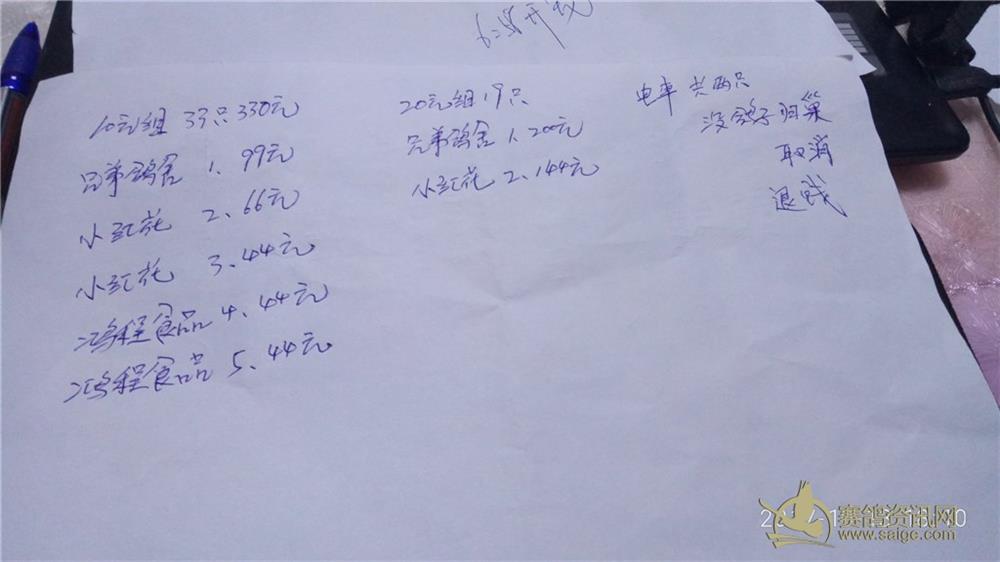 6:58开钗
10元组 33只330元
兄弟鸽舍 1、99元
小红花 2、66元
小红花 3、44元
鸿程食品 4、44元
鸿程食品 5、44元
20元组19只
兄弟鸽舍 1、200元
小红花 2、144元
电车 共两只
没鸽子归巢
取消
退钱
赛鸽资讯网
www.saige.com